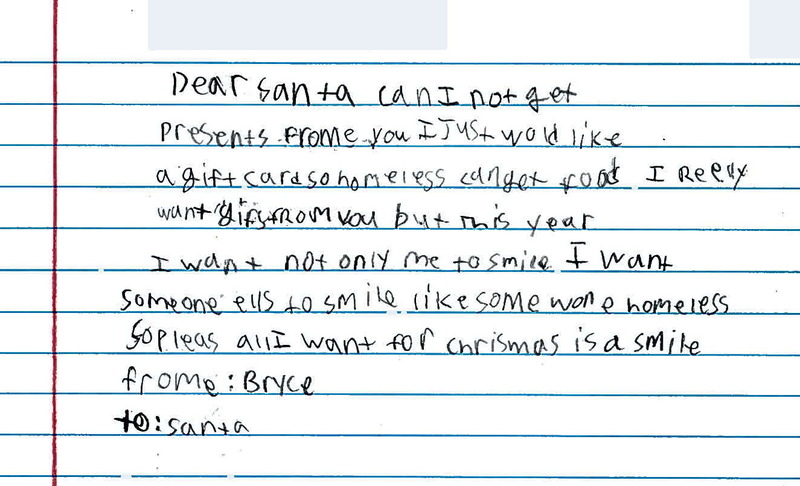 Dear santa can I not get
presents frome you I Just wold like
a gift card so homeless can get food I Reely
want gifs from you but this year
I want not only me to smile I want
someone ells to smile like some wone homeless
so pleas all I want for chrismas is a smile
frome: Bryce
to: santa